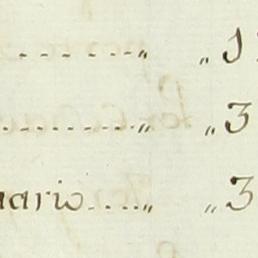 ........„ „ 1
..........„ „ 3
uario....„ „ 3